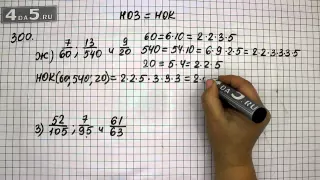 4DA5.RU
НОЗ = НОК
300.
ж) 7/60 ; 13/540 и 9/20
60 = 6·10 = 2·2·3·5
540 = 54·10 = 6·9·2·5 = 2·2·3·3·3·5
20 = 5·4 = 2·2·5
НОК(60,540,20) = 2·2·5·3·3·3 = 2·
з) 52/105 ; 7/95 и 61/63